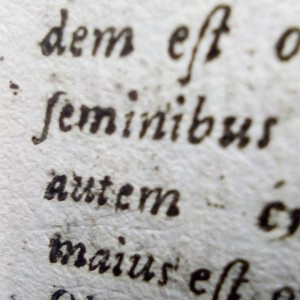 dem eſt
ſeminibus
autem
maius eſt